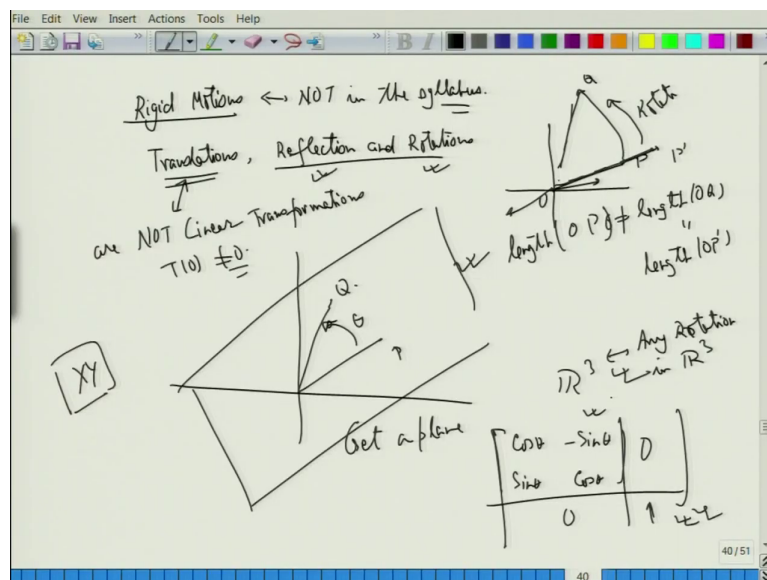 File Edit View Insert Actions Tools Help
B I
Rigid Motions ↔ NOT in the syllabus.
Translations, Reflection and Rotations
are NOT Linear Transformations
T(0) ≠ 0.
Q
Rotate
P P'
O
length (OP) ≠ length (OQ)
"
length (OP')
Q.
θ
P
XY
Get a plane
ℝ³ ↔ Any Rotation
in ℝ³
Cosθ -Sinθ 0
Sinθ Cosθ
0 1
40/51
40